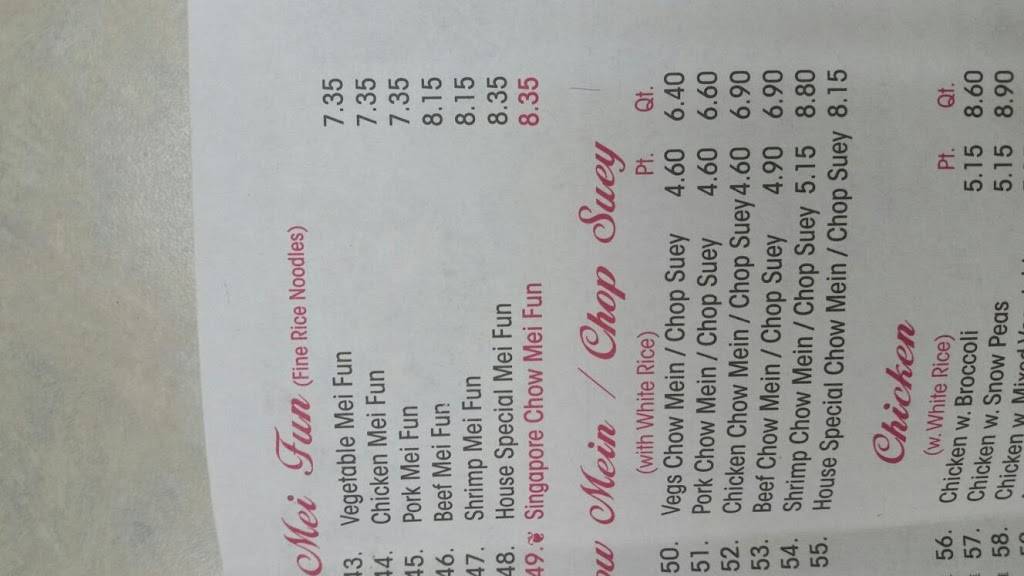 Mei Fun (Fine Rice Noodles)
43. Vegetable Mei Fun 7.35
44. Chicken Mei Fun 7.35
45. Pork Mei Fun 7.35
46. Beef Mei Fun 8.15
47. Shrimp Mei Fun 8.15
48. House Special Mei Fun 8.35
49. Singapore Chow Mei Fun 8.35
ow Mein / Chop Suey
(with White Rice) Pt. Qt.
50. Vegs Chow Mein / Chop Suey 4.60 6.40
51. Pork Chow Mein / Chop Suey 4.60 6.60
52. Chicken Chow Mein / Chop Suey 4.60 6.90
53. Beef Chow Mein / Chop Suey 4.90 6.90
54. Shrimp Chow Mein / Chop Suey 5.15 8.80
55. House Special Chow Mein / Chop Suey 8.15
Chicken
(w. White Rice) Pt. Qt.
56. Chicken w. Broccoli 5.15 8.60
57. Chicken w. Snow Peas 5.15 8.90
58. Chicken w. Mixed